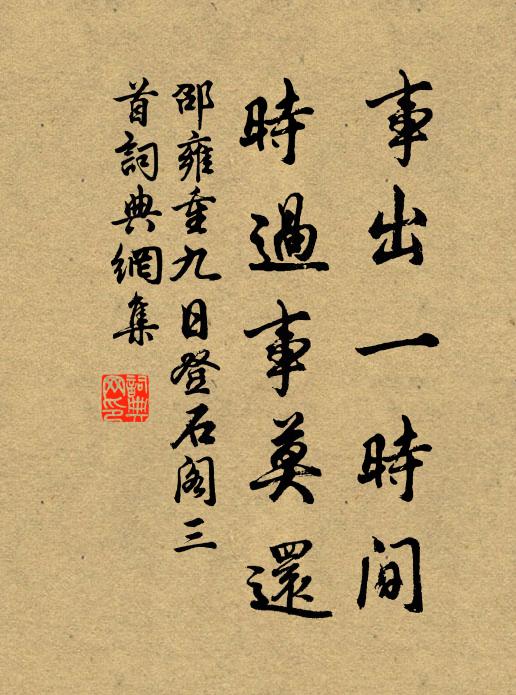 事出一時間
時過事莫還
邵雍重九日登石阁三
首詞典網集
詞典網印